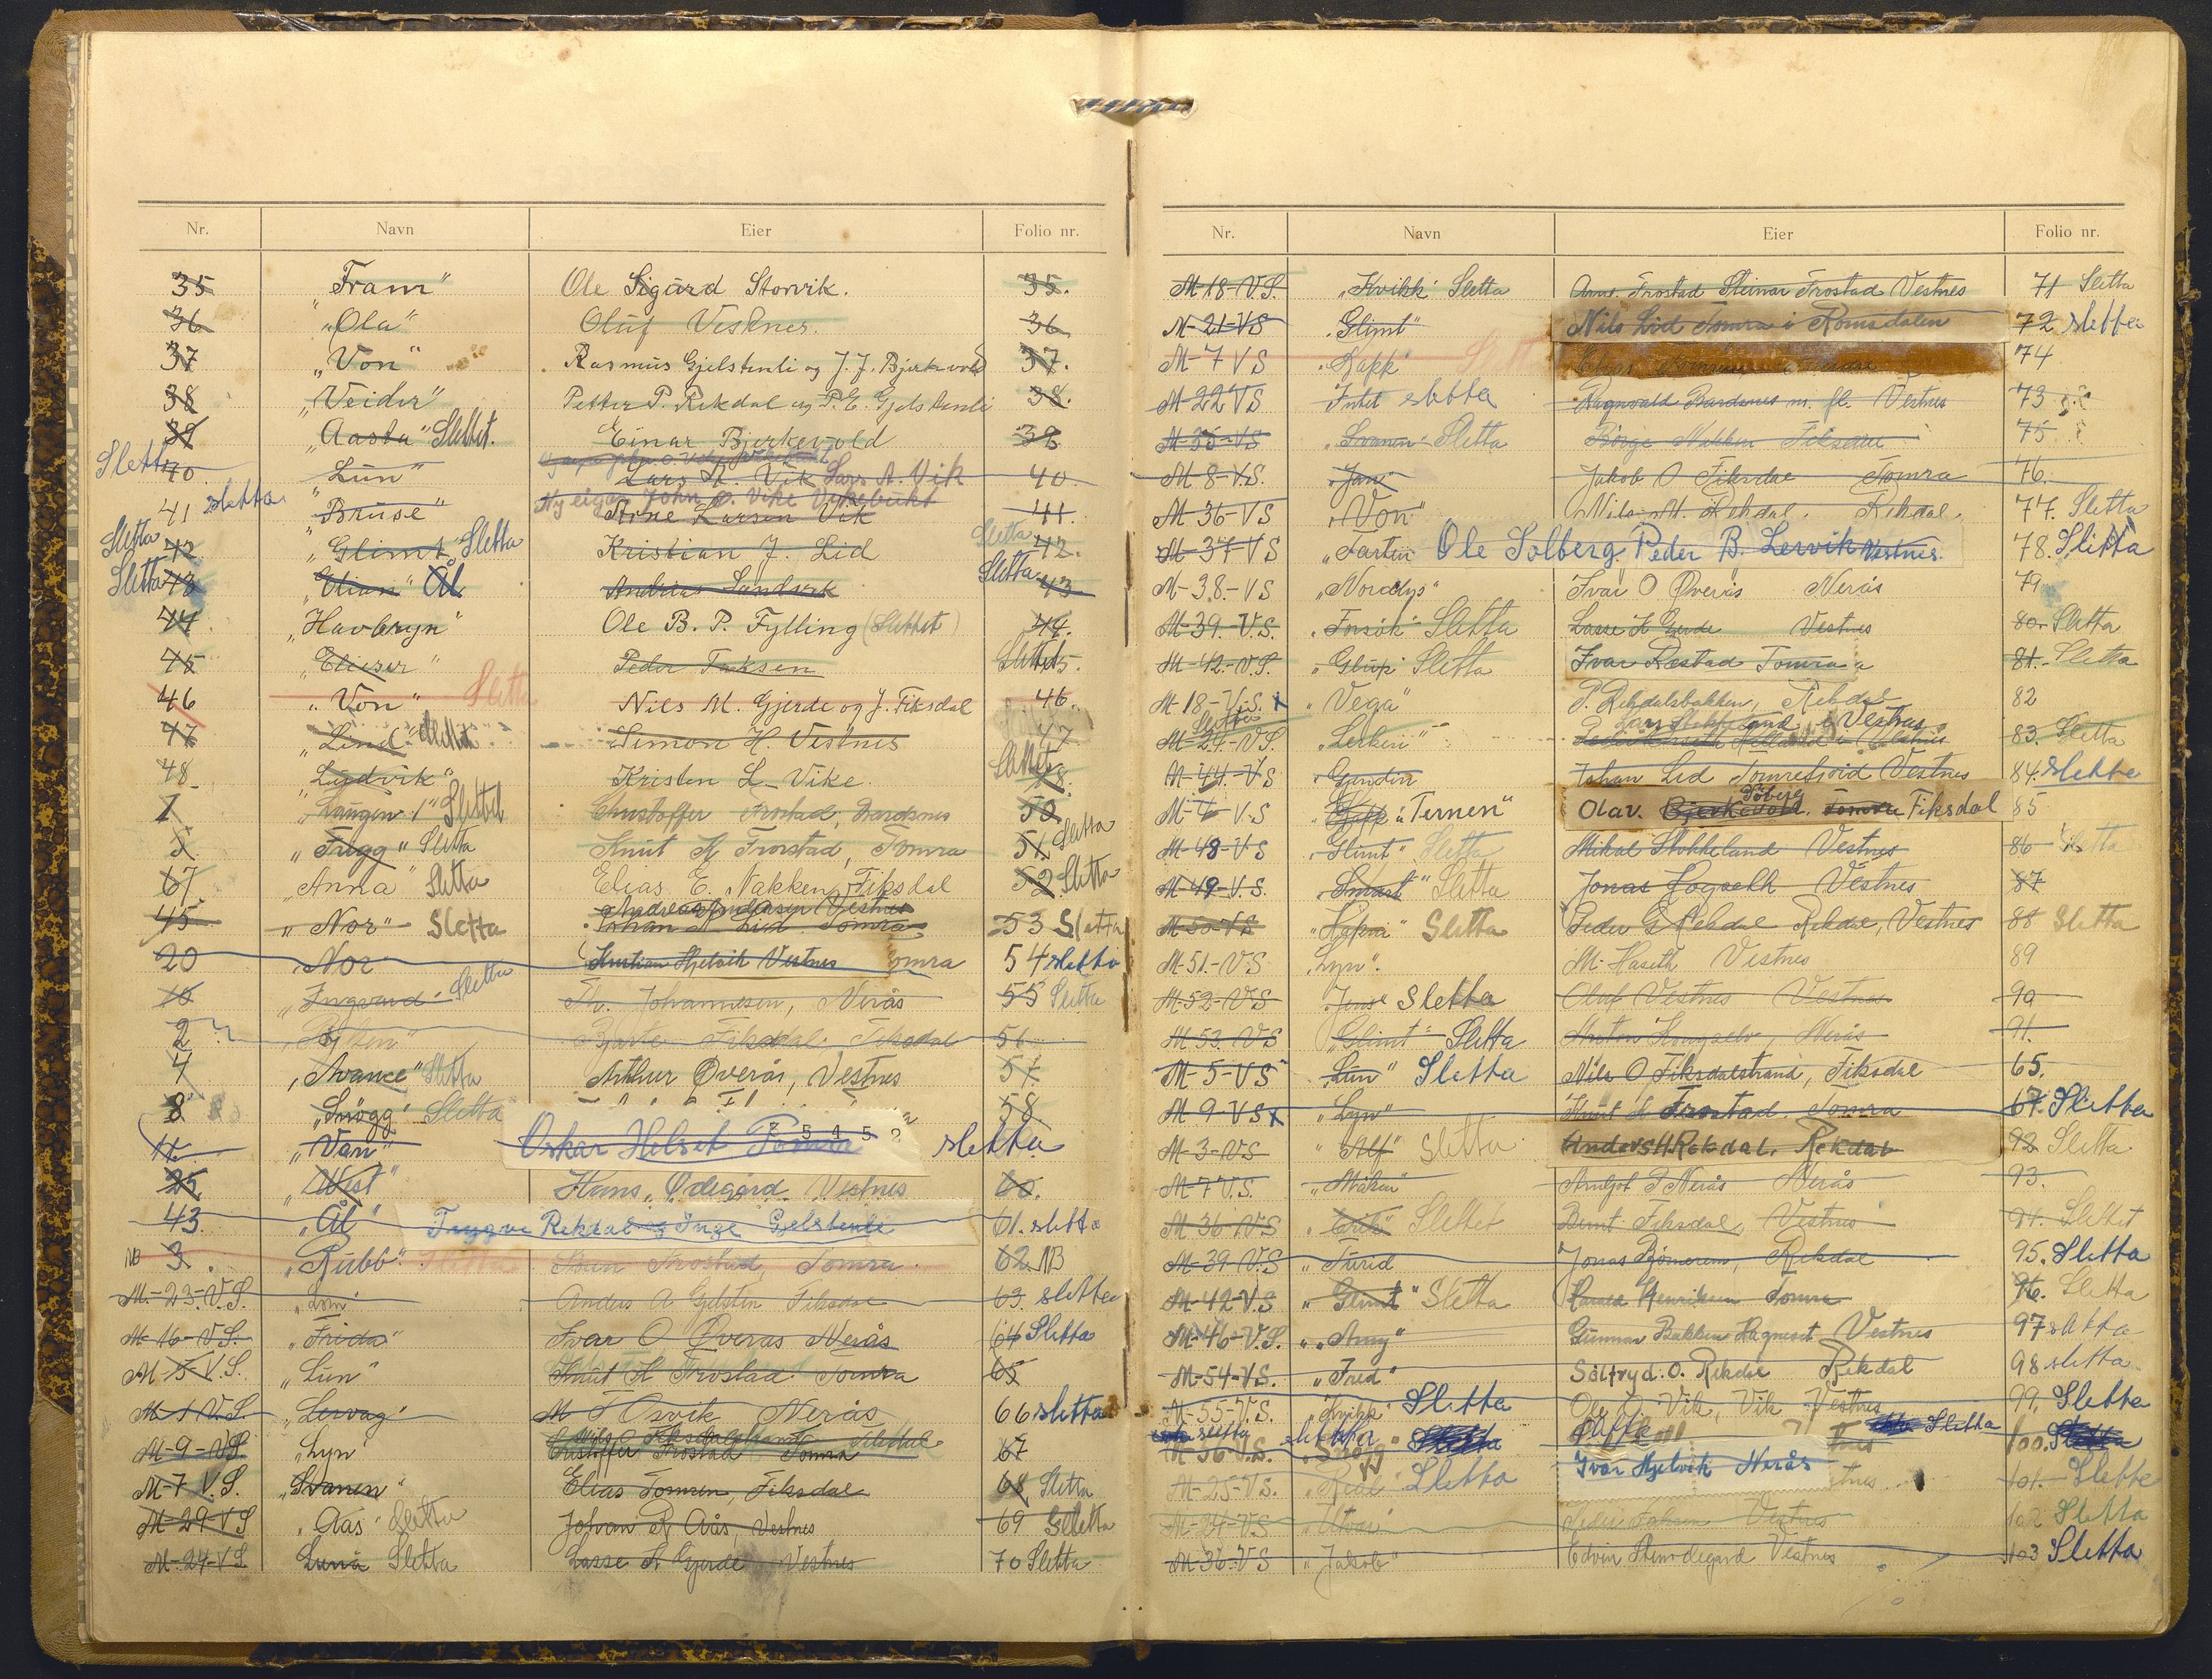 Nr. Navn Eier Folio nr.
35 „Fram“ Ole Sigurd Storvik. 35.
36 „Ola“ Oluf Vestnes. 36
37 „Von“ Rasmus Gjelstenli og J. J. Bjerkevold 37.
38 „Veidir“ Petter P. Rekdal og P. E. Gjelstenli 38.
39 „Aasta“ Slettet. Einar Bjerkevold 39
Sletta 40 „Lun“ Lars A. Vik Lars A. Vik 40
Ny eigar John O. Vike Vikebukt
41 sletta „Bruse“ Arne Larsen Vik 41.
Sletta 42 „Glimt“ Sletta Kristian J. Lid Sletta 42.
Sletta 43 Ål Andreas Sandvik Sletta 43
44 „Havbryn“ Ole B. P. Fylling (Slettet) 44.
45 „Elieser“ Peder Taksen Slettet 45.
46 „Von“ Sletta Nils M. Gjerde og J. Fiksdal 46.
47 „Lind“ Slettet Simon H. Vestnes 47
48 „Ludvik“ Kristen L. Vike. Slettet 48.
1 „Laugen 1“ Slettet Christoffer Frostad, Bardsnes 50
5 „Trygg“ Sletta Knut K Frostad, Tomra 51 Sletta
67 „Anna“ Sletta Elias E. Nakken, Fiksdal 52 Sletta
Andreas Andersen Vestnes
45 „Nor“ Sletta Johan A Lid Tomra 53 Sletta
20 „Nor“ Kristian Hjelvik Vestnes Tomra 54 sletta
10 „Ingvard“ Sletta Johannesen, Nerås 55 Sletta
2 Bjarte Fiksdal Fiksdal 56
4 „Avance“ Sletta Arthur Øverås, Vestnes 57
8 „Snøgg“ Sletta 58
11 „Van“ Oskar Helset Tomra 25452 sletta
25 „Vest“ Hans Ødegård Vestnes 60.
43 „Ål“ Trygve Rekdal og Inge Gjelstenli 61. sletta
NB 3. „Rubb“ Sletta Frostad, Tomra 62 NB
M.-23-V.S. „Lom“ Anders A Gjelsten Fiksdal 63. sletta
M-16-V.S. „Frida“ Ivar O Øverås Nerås 64 Sletta
M-5-V.S. „Lun“ Knut K Frostad Tomra 65
M-1 V.S. „Lervåg“ M T Osvik Nerås 66 sletta
Nils O Fiksdalstrand Fiksdal
M-9-VS. „Lyn“ Cristoffer Frostad Tomra 67
M-7 V.S. „Svanen“ Elias Tomren, Fiksdal 68 Sletta
M-29-VS „Aas“ Sletta Johan R Aås, Vestnes 69 Sletta
M-24-VS Luna Sletta Lasse K Gjerde Vestnes 70 Sletta
Nr. Navn Eier Folio nr.
M-18-V.S. „Kvikk“ Sletta Arne Frostad Steinar Frostad Vestnes 71 Sletta
M-21-VS „Glimt“ Nils Lid Tomra i Romsdalen 72 sletta
M-7 VS „Rapp“ 74
M-22 VS Intet sletta Ragnvald Bardsnes m. fl. Vestnes 73
M-35-VS „Svanen“ Sletta Børge Nakken Fiksdal 75
M-8-V.S. „Jan“ Jakob O Fiksdal Tomra 76.
M-36-VS „Von“ Nils M. Rekdal. Rekdal. 77. Sletta
M-37-VS „Tarten Ole Solberg. Peder B. Lervik Vestnes. 78. Sletta
M-38-VS „Nordlys“ Ivar O Øverås Nerås 79
M-39-V.S. „Forsøk“ Sletta Lasse K Gjerde Vestnes 80. Sletta
M-42-V.S. Sletta Ivar Restad Tomra 81. Sletta
M-18-V.S. x „Vega“ P. Rekdalsbakken, Rekdal 82
M-24-V.S. Sletta „Lerken“ Lars Stokkeland i Vestnes 83. Sletta
M-44-VS „Gundin Johan Lid Tomrefjord Vestnes 84. sletta
M-4-V.S „Ternen“ Olav. Bjerkevold. Tomra Fiksdal 85
M-48-VS „Glimt“ Sletta Mikal Stokkeland Vestnes 86 Sletta
M-49-V.S. „Smart“ Sletta Jonas Hogseth Vestnes 87
M-50-VS „Håpa“ Sletta Peder G Rekdal Rekdal, Vestnes 88 Sletta
M-51-VS „Lyn“. M. Haseth Vestnes 89
M-52-VS Sletta Oluf Vestnes Vestnes 90
M-53-VS „Glimt“ Sletta Nerås 91.
M-5-VS „Lun“ Sletta Nils O Fiksdalstrand, Fiksdal 65.
M-9-VS x „Lyn“ Knut K Frostad. Tomra 67. Sletta
M-3-VS „Alf“ Sletta Anders H Rekdal. Rekdal 92 Sletta
M-7 V.S. „Måken“ Arnljot P Nerås Nerås 93.
M-36-VS Slettet Bernt Fiksdal, Vestnes 94. Slettet
M-39-V.S „Turid Jonas Bjørnerem, Rekdal 95. Sletta
M-42-V.S „Glimt“ Sletta Harald Henriksen Tomra 96. Sletta
M-46-V.S. „Amy“ Gunnar Bakken Hagneset Vestnes 97 sletta
M-54-V.S. „Fred“ Sålfryd. O. Rekdal Rekdal 98 sletta
M-55-V.S. „Kvikk“ Sletta Ole O. Vik, Vik Vestnes 99. Sletta
sletta sletta
M-56-V.S. „Snøgg“ Sletta Sletta 100. Sletta
M-25-V.S. „Real“ Sletta Ivar Hjelvik Nerås 101. Sletta
M-24-V.S „Utvær“ Peder Taksen Vestnes 102 Sletta
M-36-VS „Jakob“ Edvin Stenødegard Vestnes 103 Sletta